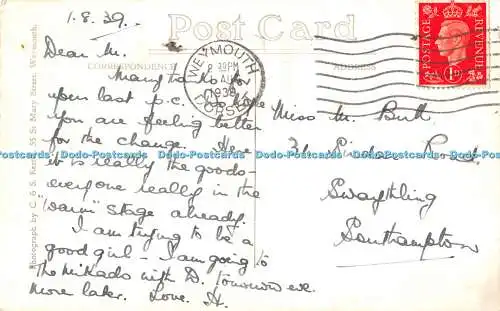 1.8.39.
Post Card
CORRESPONDENCE
ADDRESS
Dear M.
Many thanks for
your last p.c. so hope
you are feeling better
for the change. Here
it is really the goods –
everyone really in the
"warm" stage already.
I am trying to be a
good girl – I am going to
the Mikado with D. tomorrow eve.
More later. Love. H.
Miss M. Butt
Road
Swaythling
Southampton
WEYMOUTH
PM
AU
1939
DORSET
POSTAGE
REVENUE
1D
Photograph by C & S 55 St Mary Street, Weymouth.
Dodo-Postcards Dodo-Postcards Dodo-Postcards Dodo-Postcards